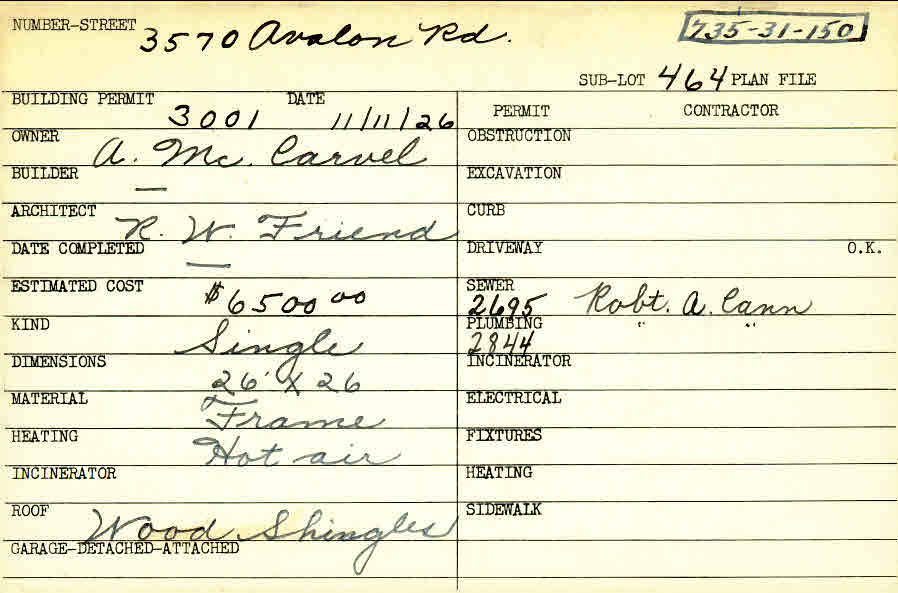 NUMBER-STREET 3570 Avalon Rd. 735-31-150
SUB-LOT 464 PLAN FILE
BUILDING PERMIT 3001 DATE 11/11/26
PERMIT CONTRACTOR
OWNER A. Mc. Carvel
OBSTRUCTION
BUILDER —
EXCAVATION
ARCHITECT R. W. Friend
CURB
DATE COMPLETED —
DRIVEWAY O.K.
ESTIMATED COST $6500 00
SEWER 2695 Robt. A. Cann
KIND Single
PLUMBING 2844 " "
DIMENSIONS 26' X 26
INCINERATOR
MATERIAL Frame
ELECTRICAL
HEATING Hot air
FIXTURES
INCINERATOR
HEATING
ROOF Wood Shingles
SIDEWALK
GARAGE-DETACHED-ATTACHED